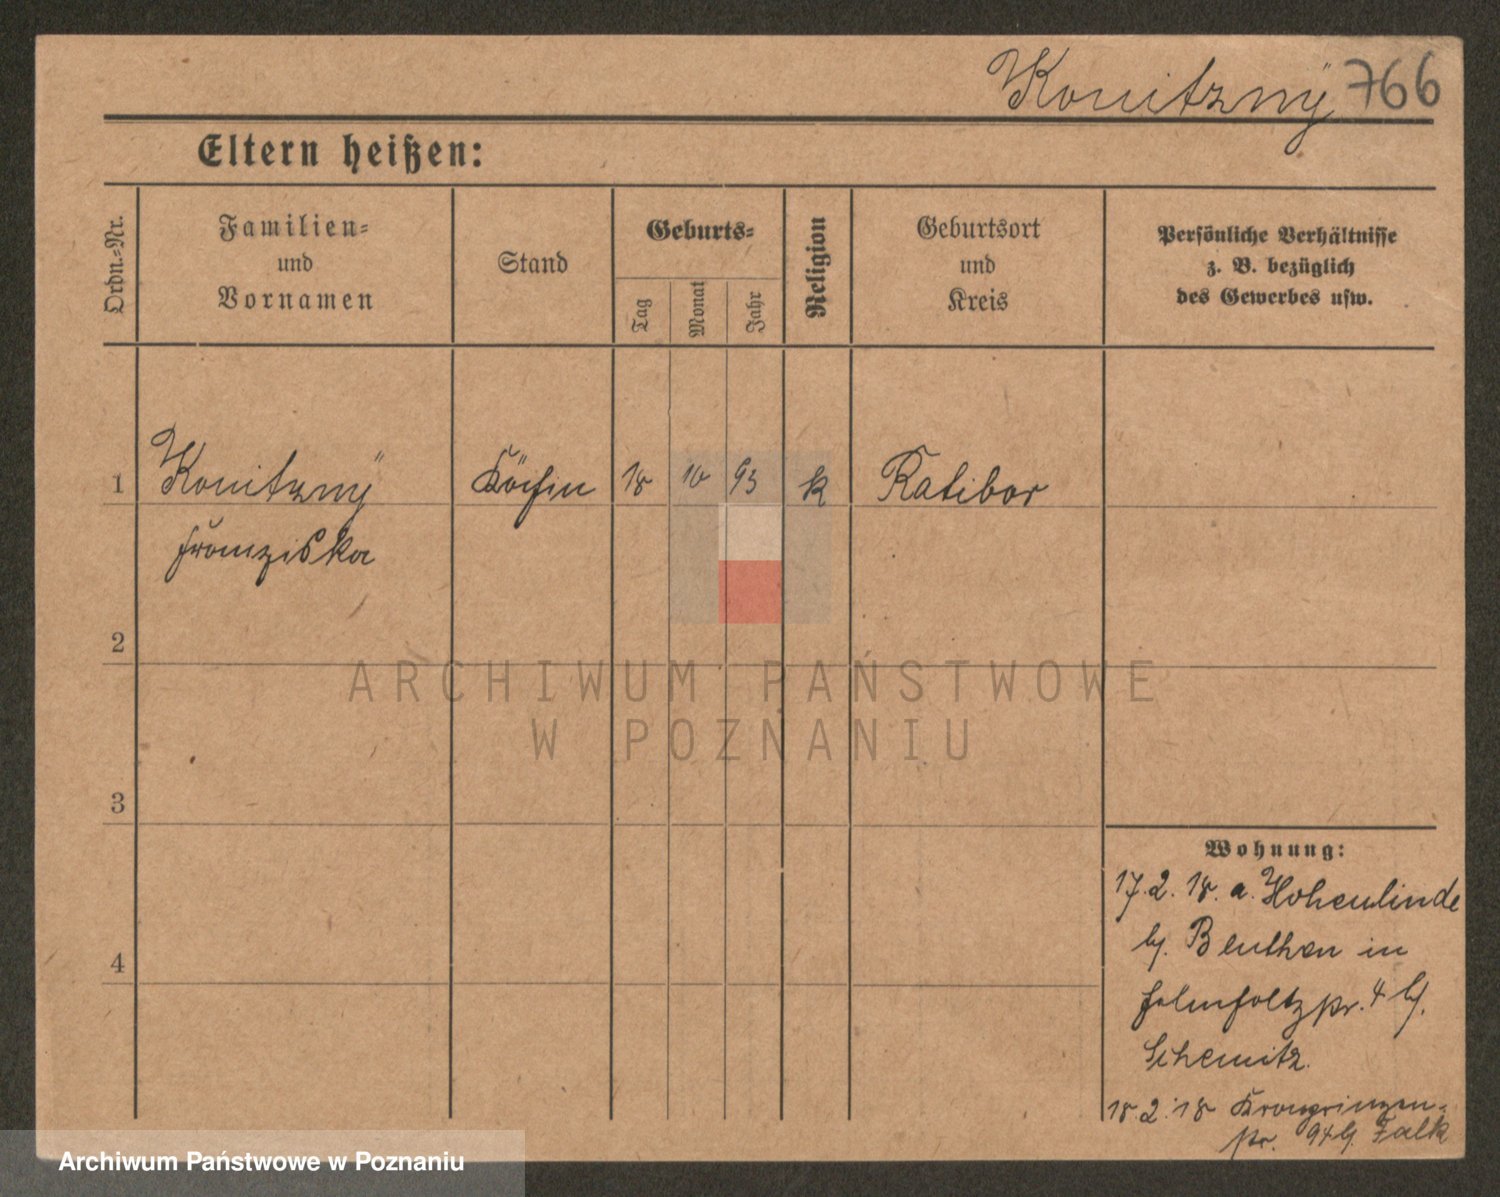 Konitzny 766
Eltern heißen:
Ordn.-Nr.
Familien-
und
Vornamen
Stand
Geburts-
Tag
Monat
Jahr
Religion
Geburtsort
und
Kreis
Persönliche Verhältnisse
z. B. bezüglich
des Gewerbes usw.
1 Konitzny Köchin 18 10 93 k Ratibor
Franziska
2
3
4
ARCHIWUM PAŃSTWOWE
W POZNANIU
Wohnung:
17.2.18. a. Hohenlinde
b/. Beuthen in
Helmholtzstr. 4 b/.
Schemitz.
18.2.18 Kronprinzen-
str. 94 b/. Falk
Archiwum Państwowe w Poznaniu